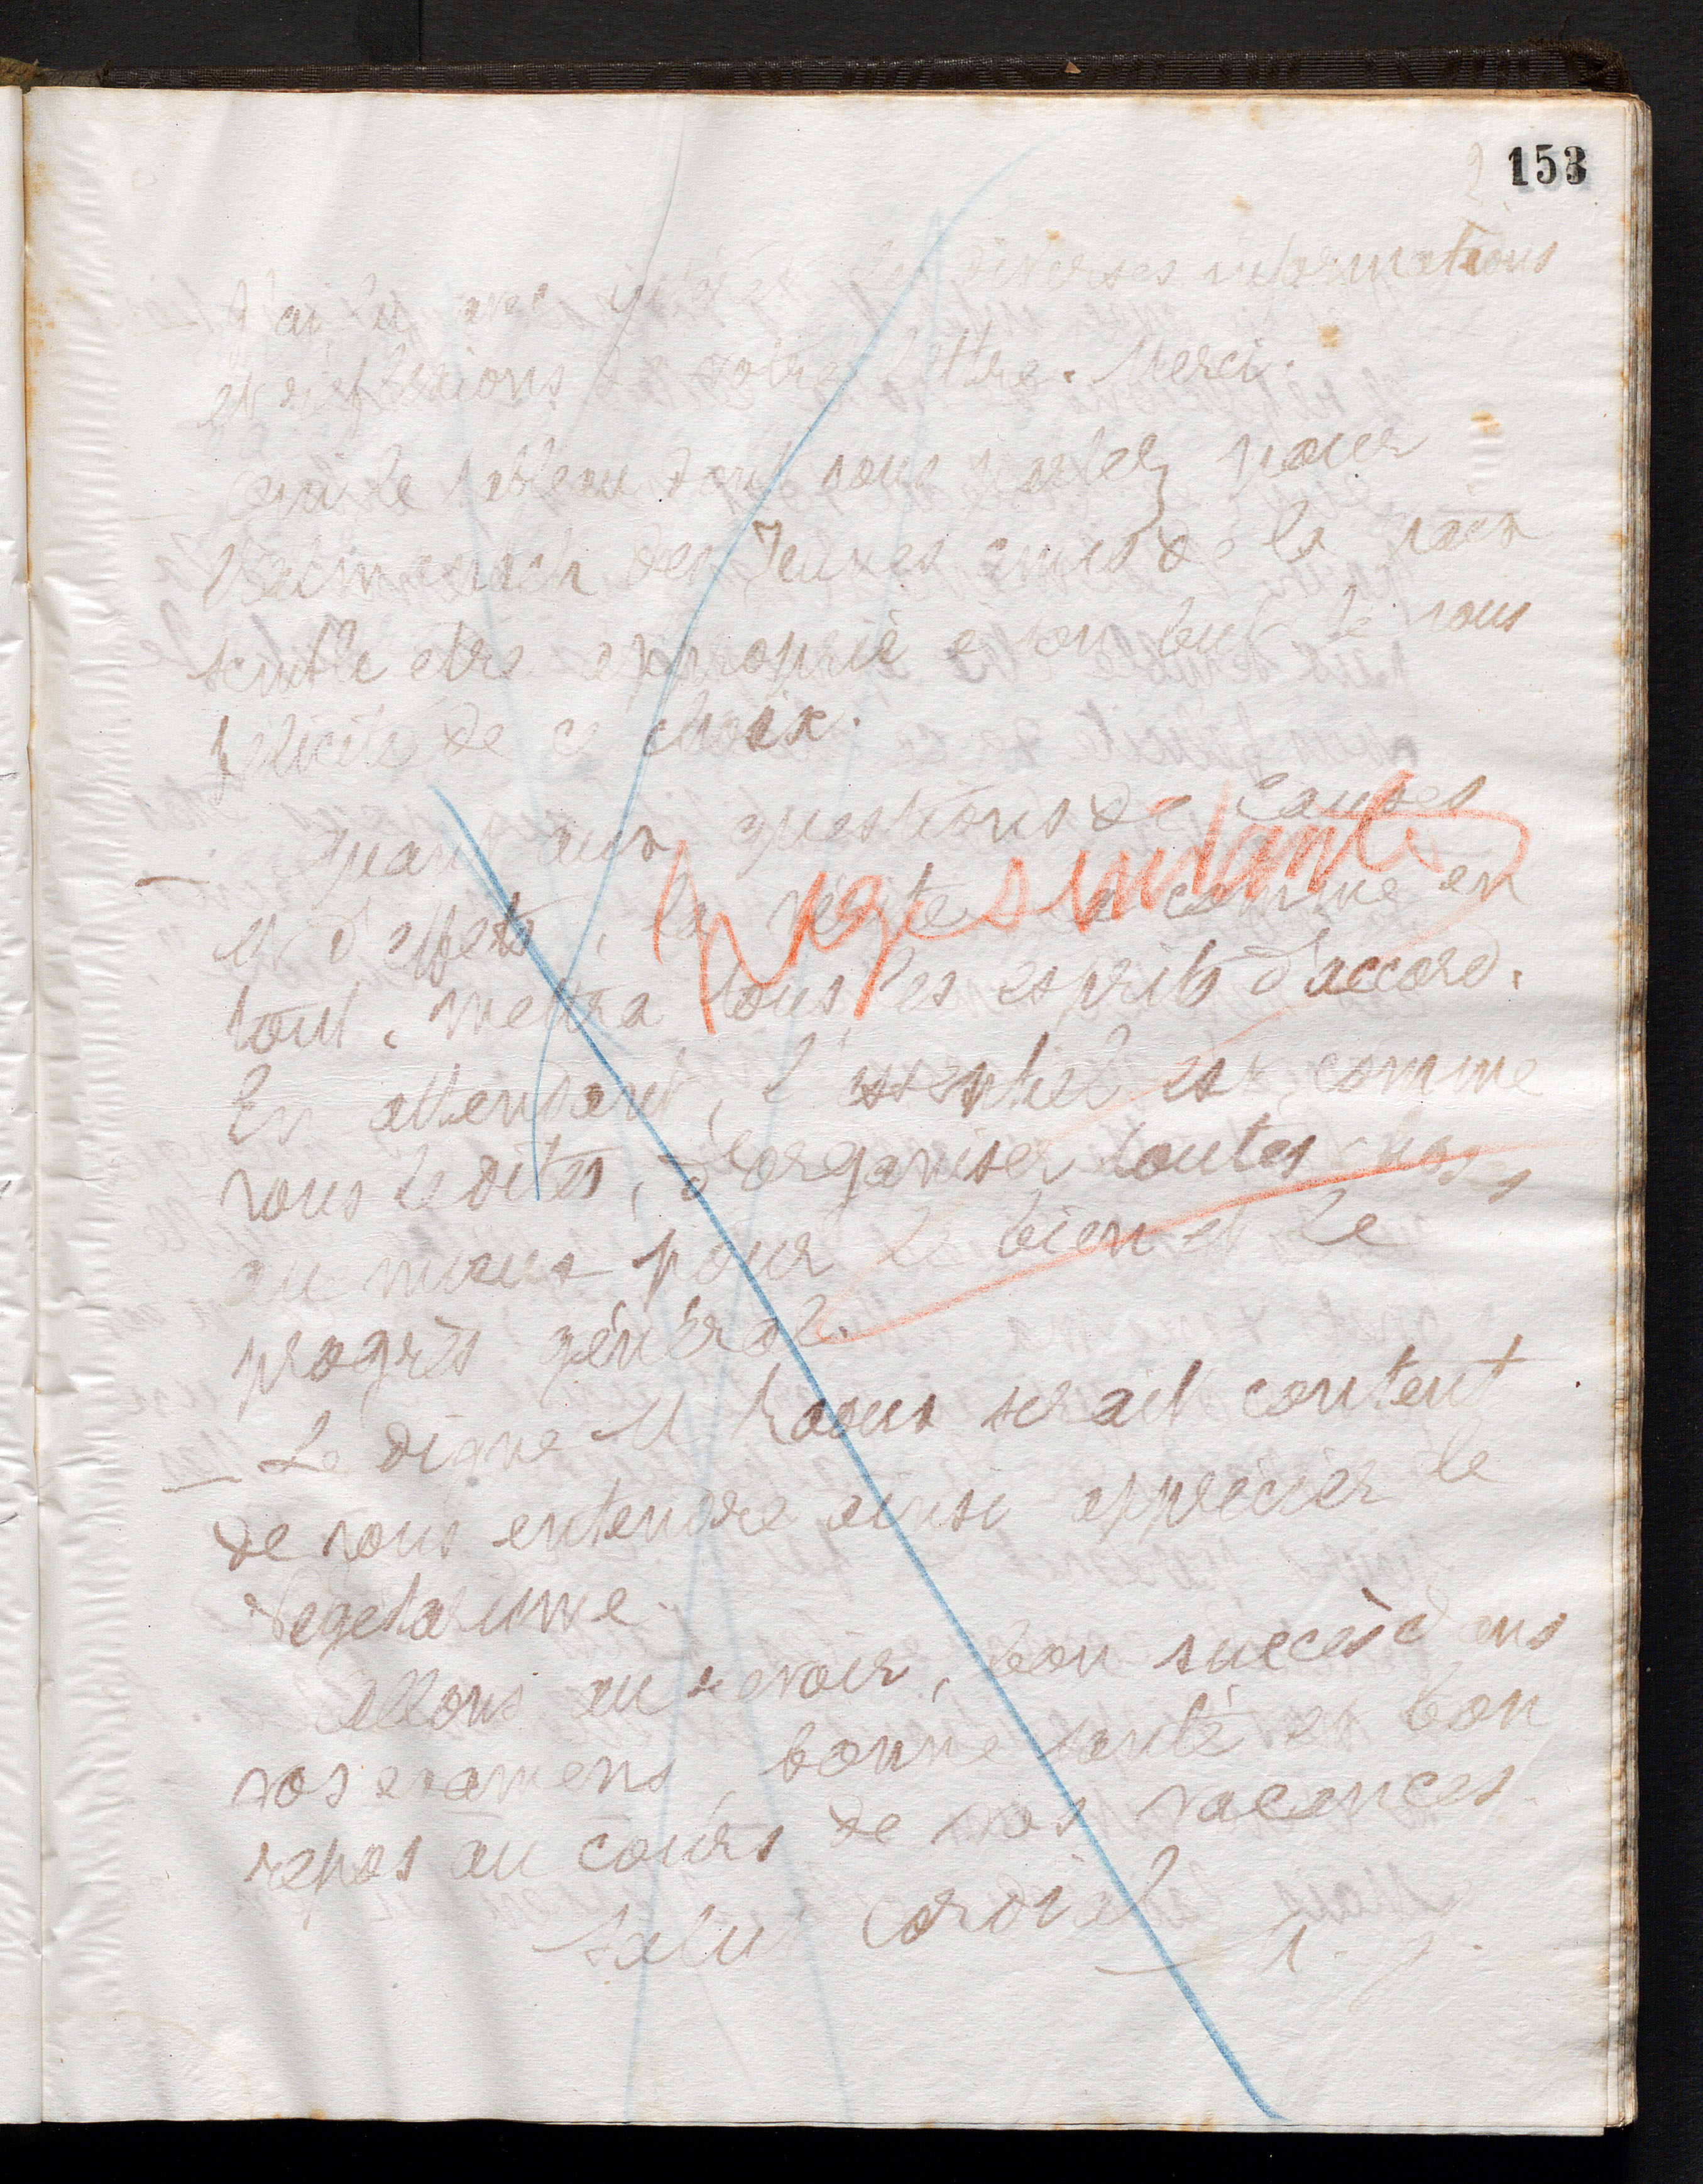 153
2
J'ai lu avec intérêt les diverses informations
et réflexions de votre lettre. Merci.
le tableau dont vous parlez pour
l'almanach des Jeunes amis de la paix
semble etre approprié à son but. Je vous
felicite de ce choix.
Quant aux questions de Causes
page suivante
et d'effets, la vérité la comme en
tout, mettra tous les esprits d'accord.
En attendant, l'essentiel est, comme
vous le dites, d'organiser toutes choses
au mieux pour le bien et le
progrès général.
Le digne M serait content
de vous entendre ainsi apprécier le
Vegetarisme.
Allons au revoir, bon succès dans
vos examens, bonne santé et bon
repos au cours de vos vacances.
Salut Cordial